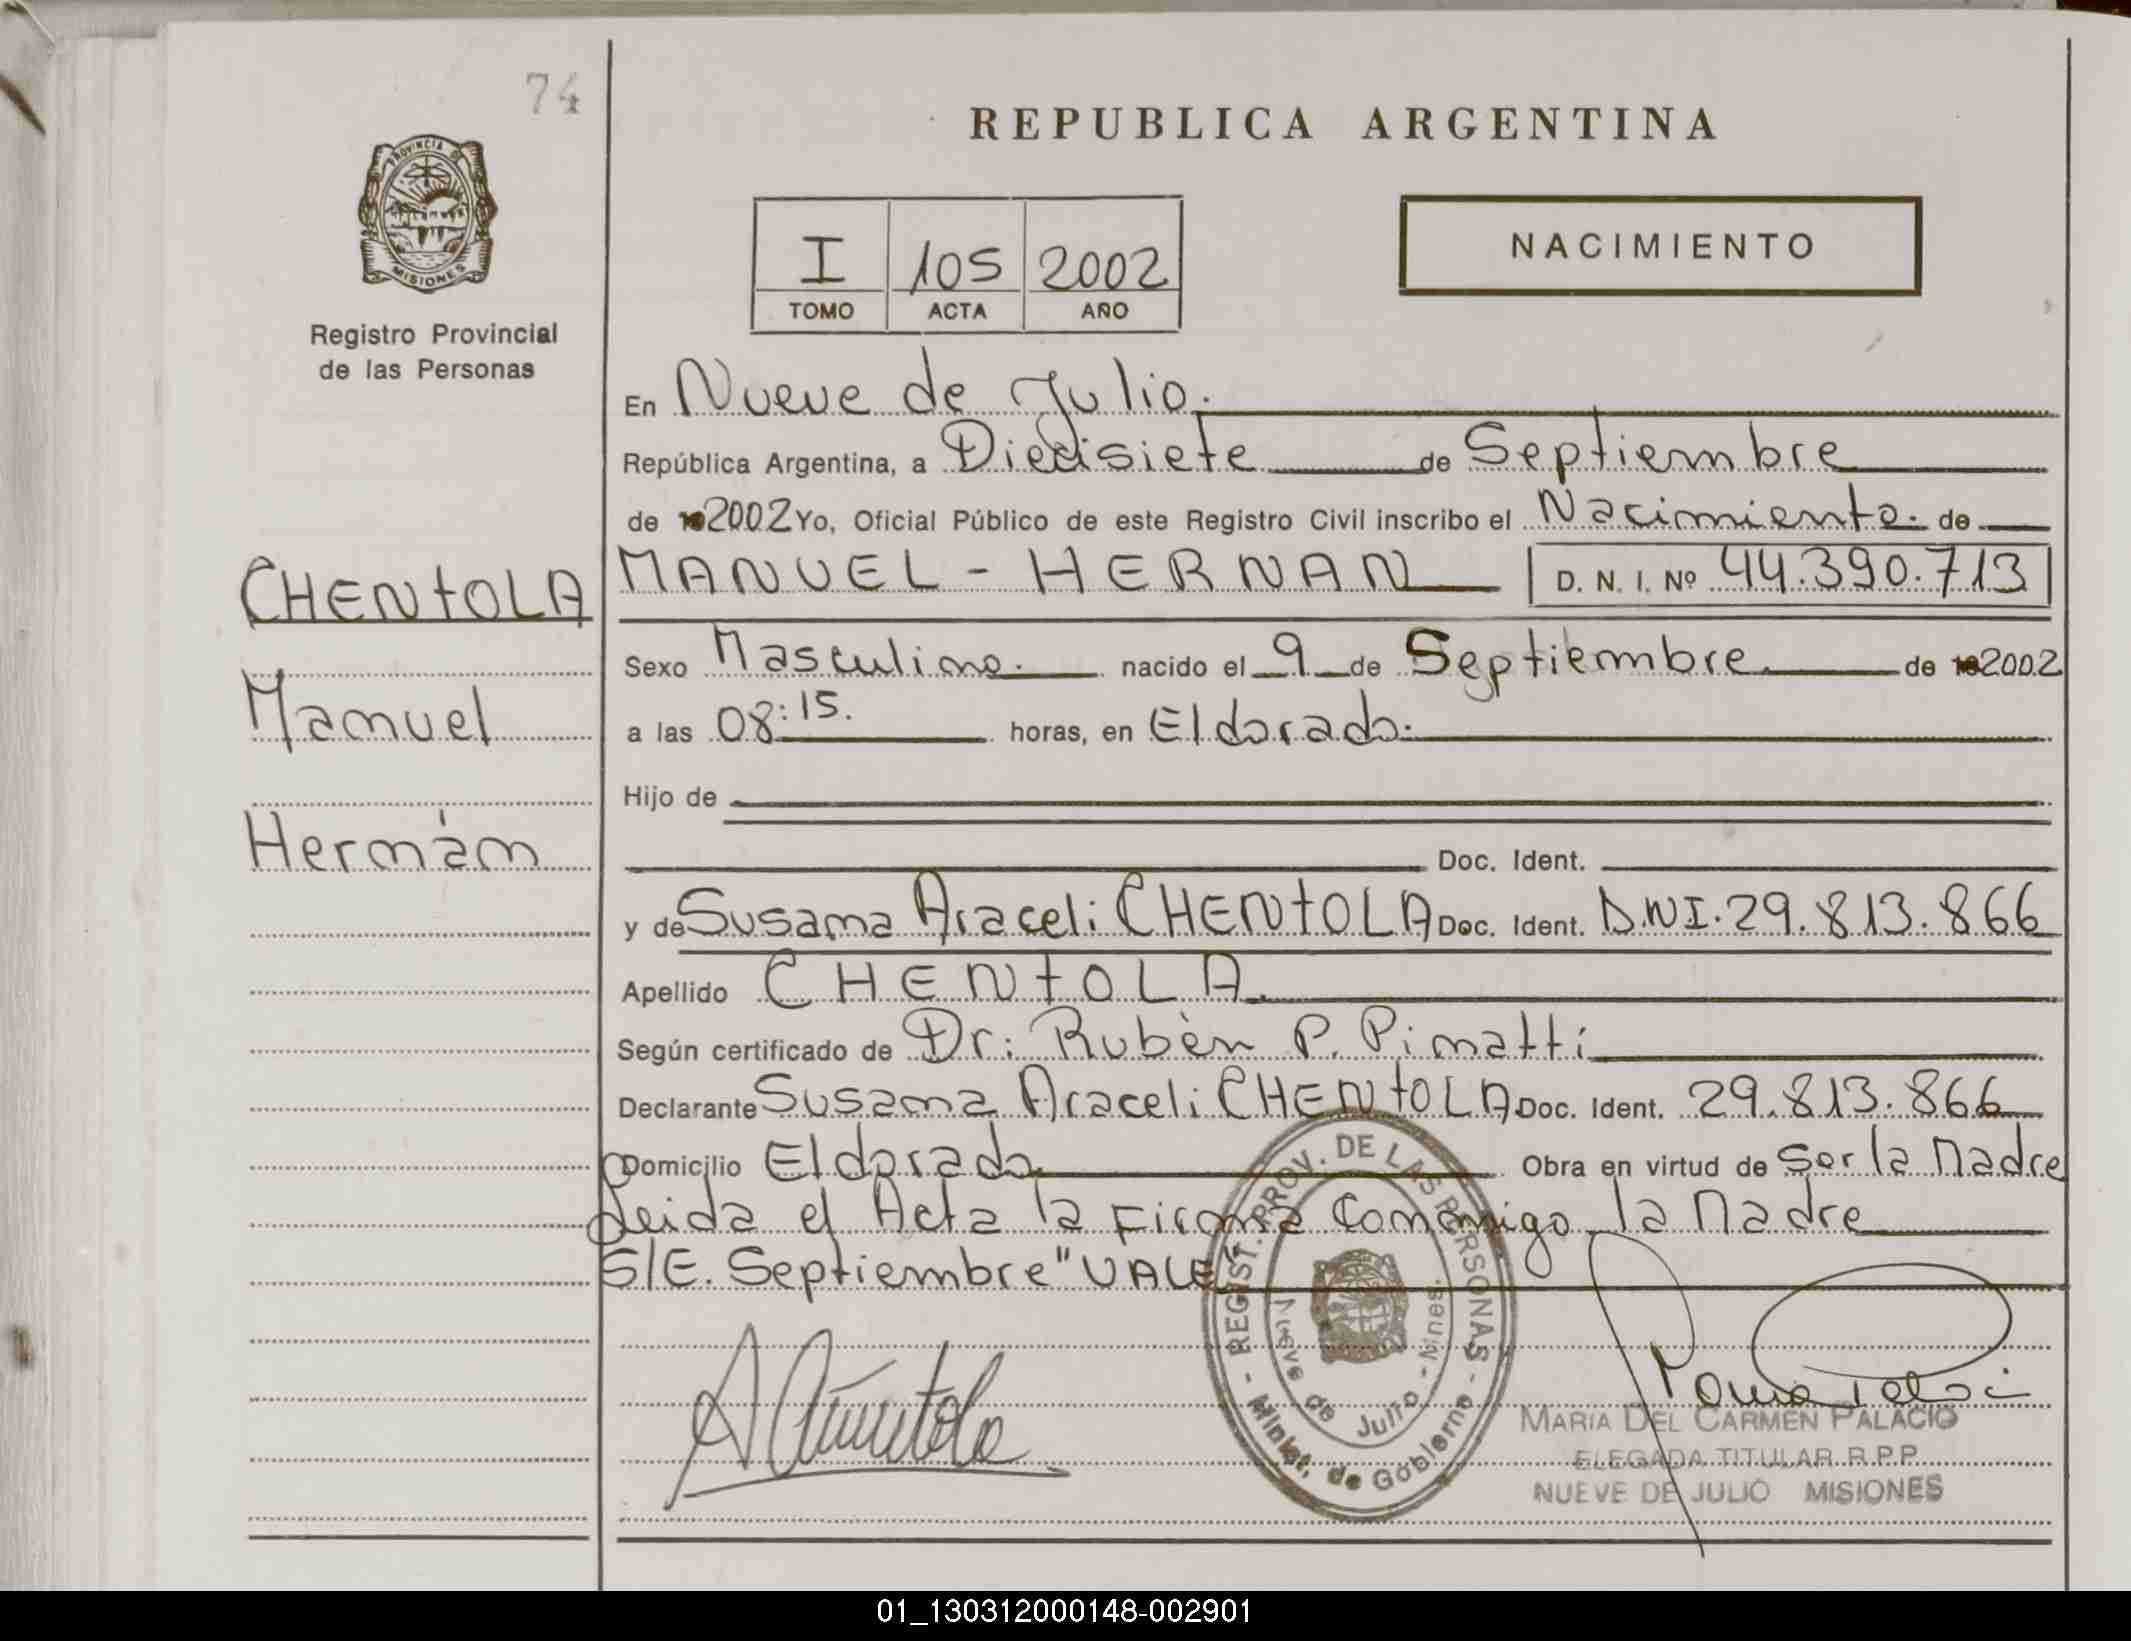 74
PROVINCIA DE
MISIONES
Registro Provincial
de las Personas
REPUBLICA ARGENTINA
I 105 2002
TOMO ACTA AÑO
NACIMIENTO
En Nueve de Julio.
República Argentina, a Diecisiete de Septiembre
de 2002 Yo, Oficial Público de este Registro Civil inscribo el Nacimiento. de
CHENTOLA MANUEL - HERNAN D. N. I. Nº 44.390.713
Sexo Masculino. nacido el 9 de Septiembre. de 2002
Manuel
a las 08:15. horas, en Eldorado.
Hijo de
Hernán
Doc. Ident.
y de Susana Araceli CHENTOLA Doc. Ident. D.N.I. 29.813.866
Apellido CHENTOLA.
Según certificado de Dr: Rubèn P. Pinatti
Declarante Susana Araceli CHENTOLA Doc. Ident. 29.813.866
Domicilio Eldorado. Obra en virtud de Ser la Madre
Leida el Acta la Firma Conmigo la Madre
S/E. Septiembre "VALE"
REGIST. PROV. DE LAS PERSONAS
Nueve de Julio - Mnes.
- Minist. de Gobierno -
MARIA DEL CARMEN PALACIO
ELEGADA TITULAR R.P.P
NUEVE DE JULIO MISIONES
01_130312000148-002901